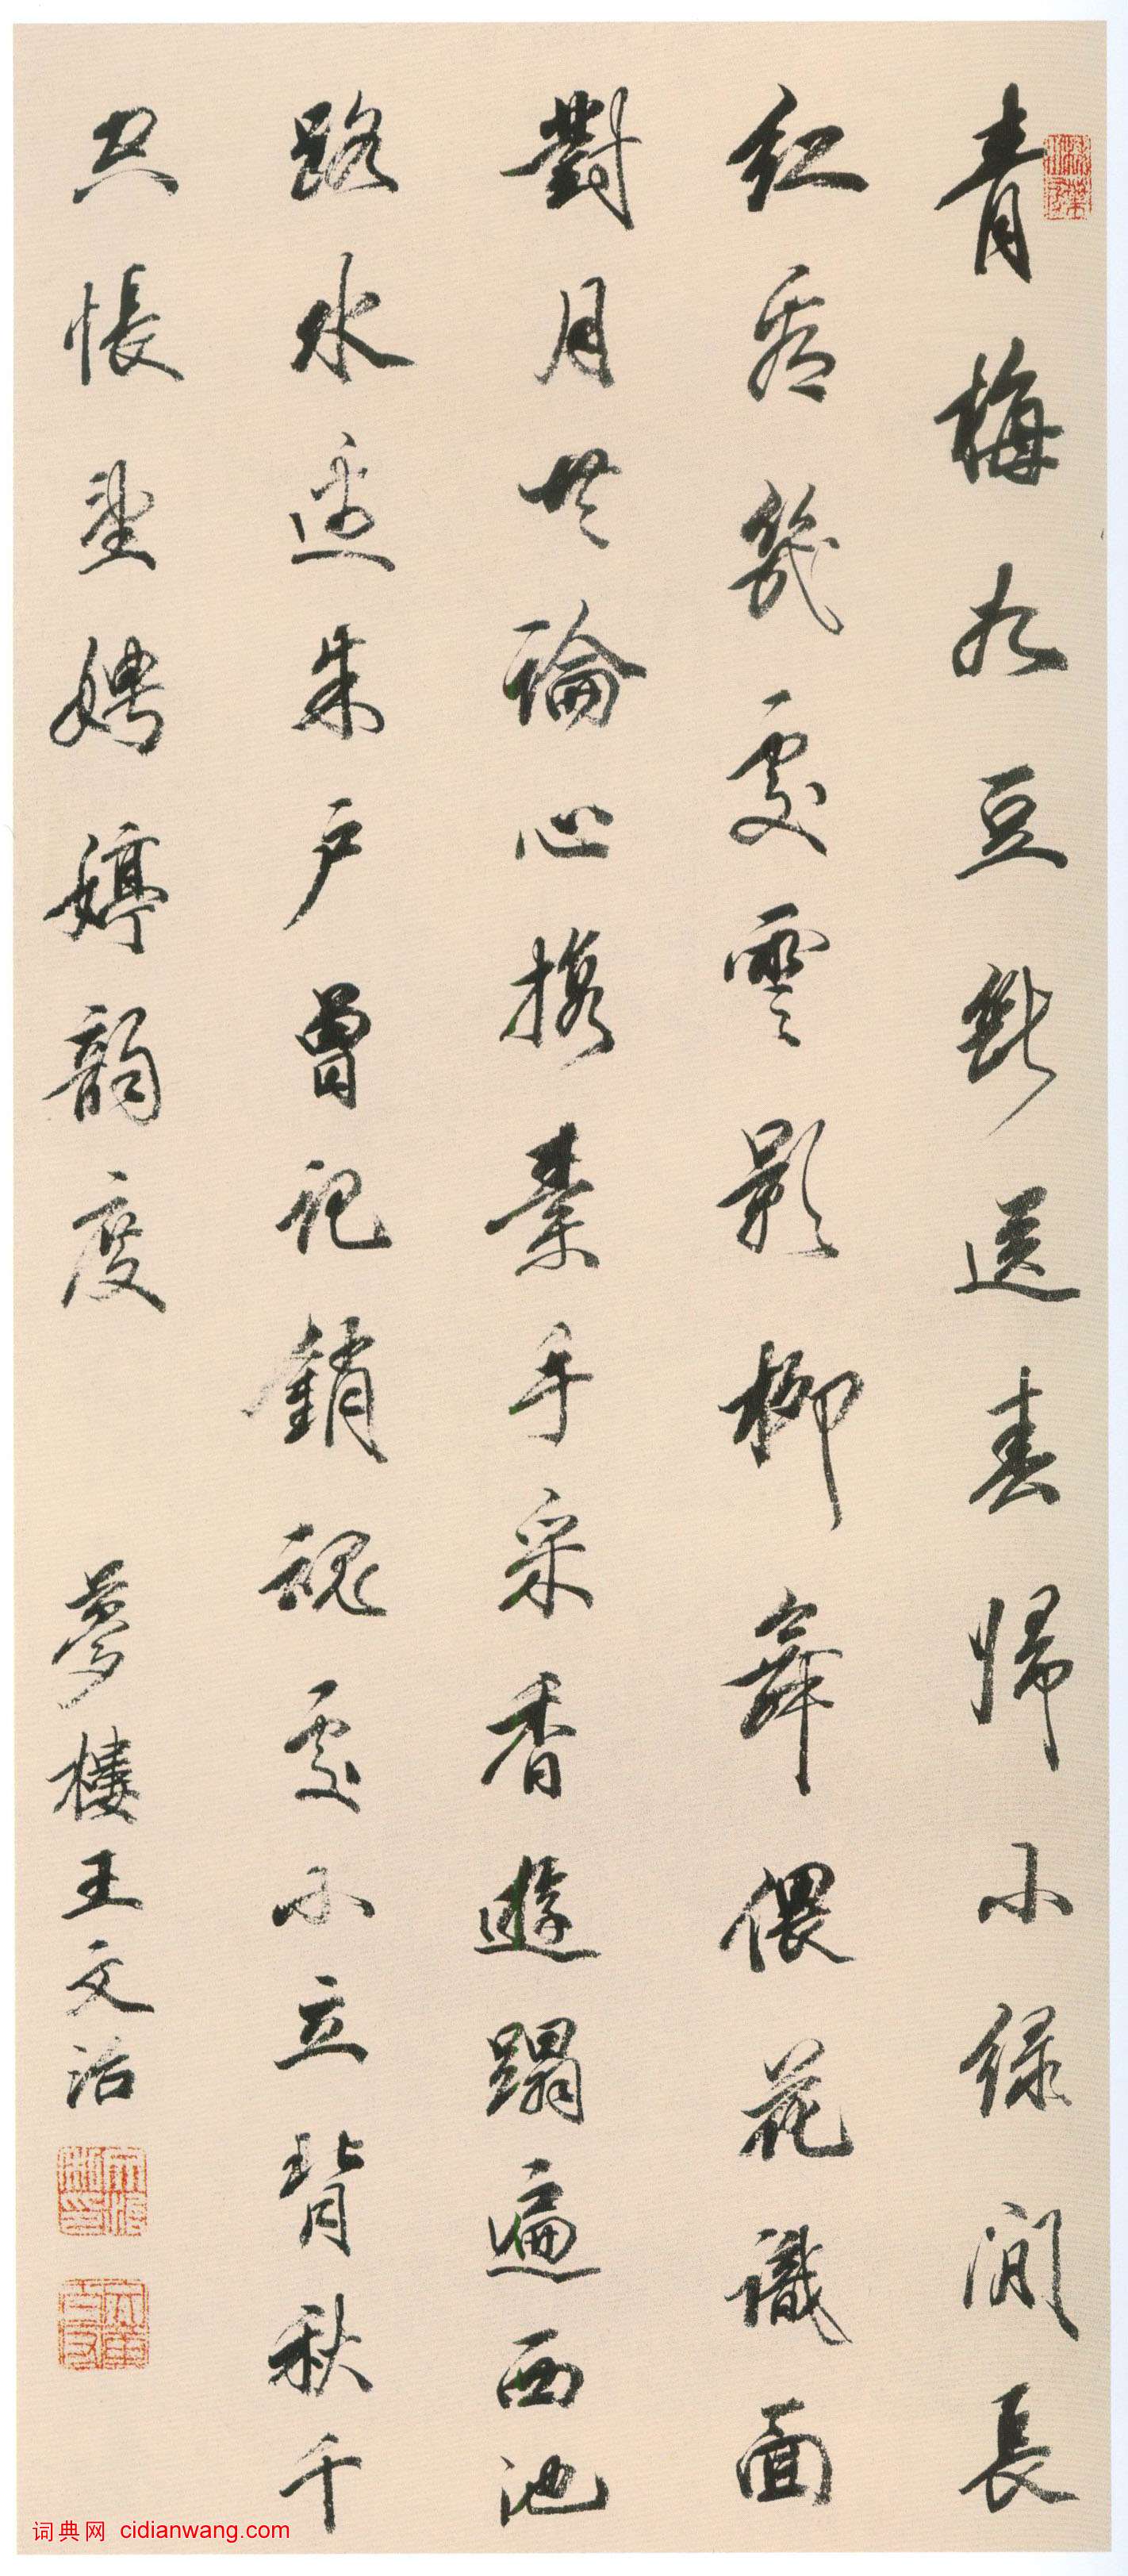 青梅如豆斷送春歸小緑間長
紅看幾處雲影柳舞偎花識面
對月共論心携素手采香遊蹋遍西池
路水邊朱户曾記銷魂處小立背秋千
空悵望娉婷韵度 夢樓王文治
词典网 cidianwang.com